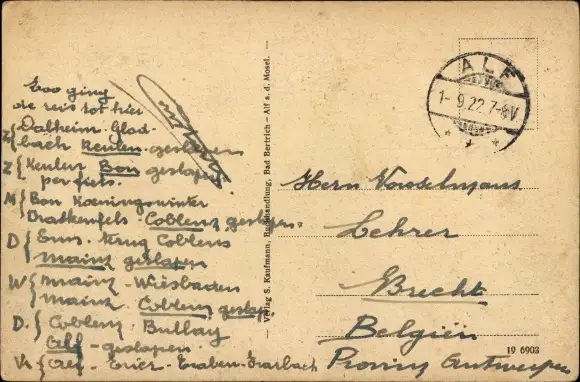 Zoo ging
de reis tot hier
Z { Dalheim. Glad-
bach Keulen geslapen
Z { Keulen Bon geslapen
per fiets.
M { Bon Koeningswinter
Drakenfels Coblenz geslapen
D { Ems. Krug Coblens
Mainz geslapen
W { Mainz - Wiesbaden
Mainz Coblenz geslap
D. { Coblenz Bullay
Alf - geslapen.
Vr { Alf - Trier - Traben-Trarbach
Verlag S. Kaufmann, Buchhandlung, Bad Bertrich - Alf a. d. Mosel.
ALF
1-9.22.7-8V
Herrn
Lehrer
Brecht
Belgiën
Proviny Antwerpen
19 6903